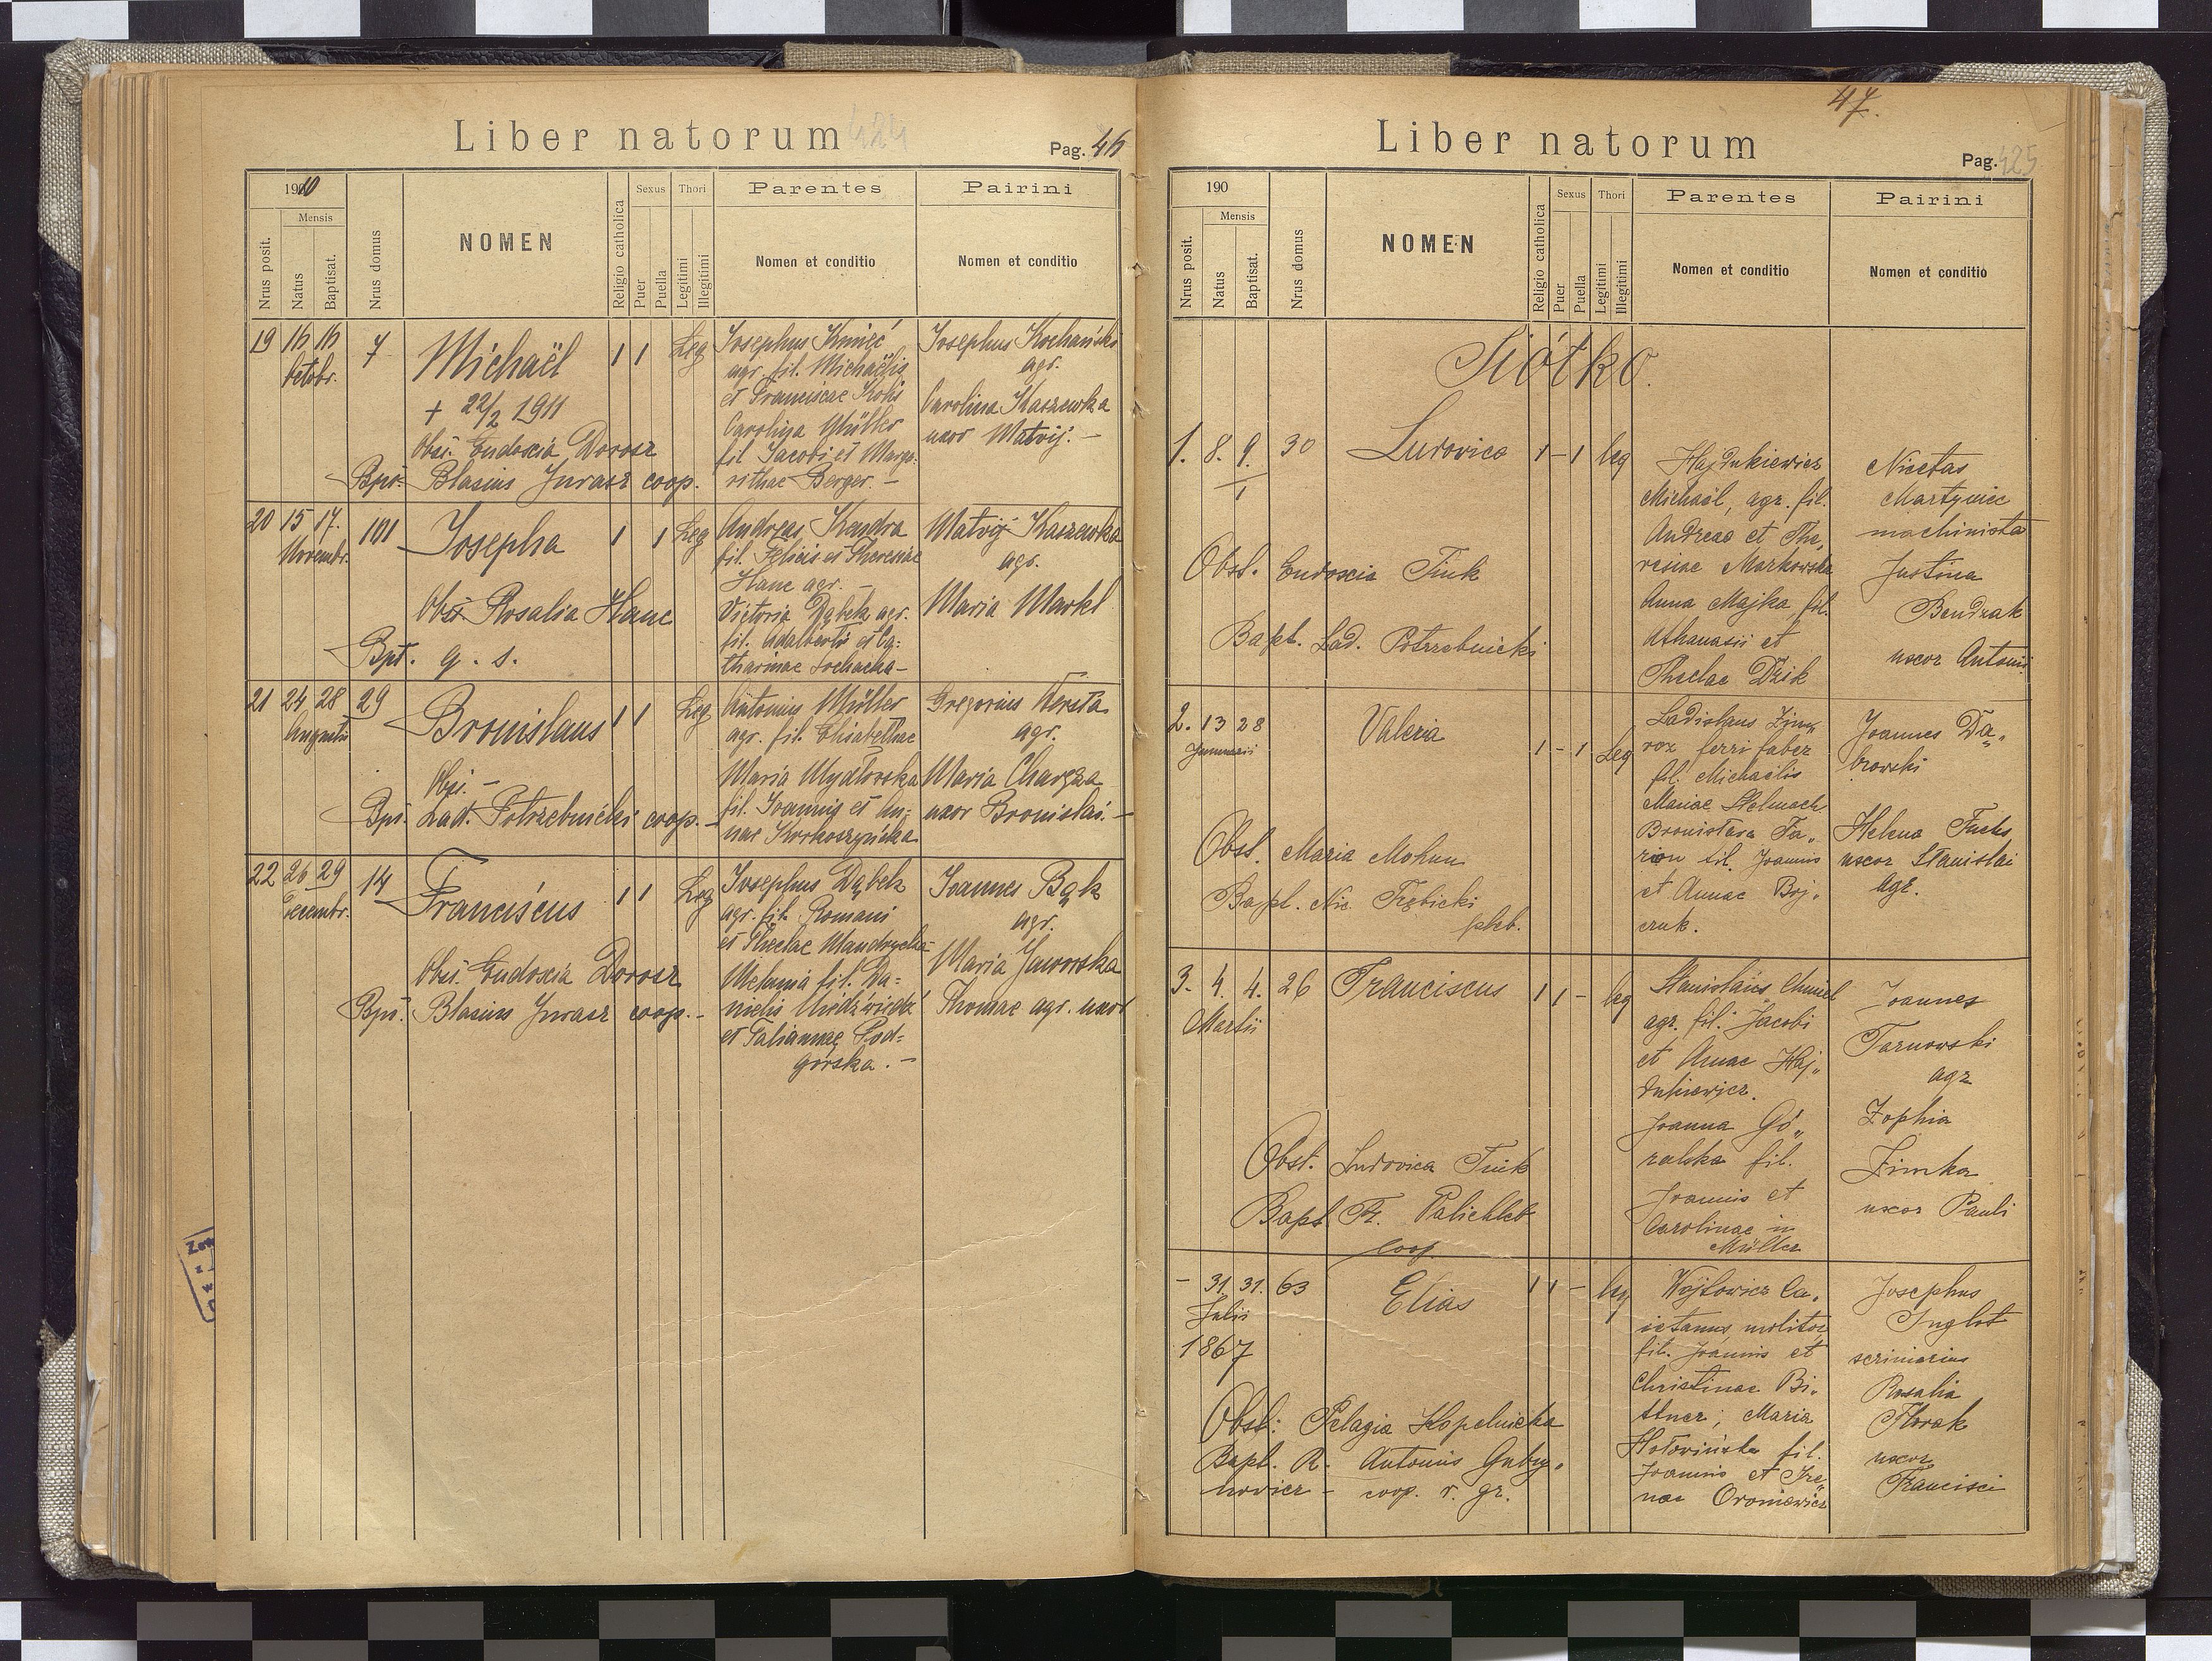 Liber natorum 424
Pag. 46
1910
Mensis
Nrus posit.
Natus
Baptisat.
Nrus domus
NOMEN
Religio catholica
Sexus
Puer
Puella
Thori
Legitimi
Illegitimi
Parentes
Nomen et conditio
Pairini
Nomen et conditio
19 16 16 7 Michaël 1 1 Leg
Octobr.
+ 22/2 1911
Obst. Eudoxia Dorosz
Bpt. Blasius Jurasz coop.
Josephus Kmieć
agr. fil. Michaëlis
et Franciscae Koks
Carolina Müller
fil. Jacobi et Marga-
rithae Berger. —
Josephus Kochański
agr.
Carolina Kaszewka
uxor Matvij. —
20 15 17. 101 Josepha 1 1 Leg
Novembr.
Obst. Rosalia Hanc
Bpt. q. s.
Andreas Kendra
fil. Felicis et Theresiae
Hanc agr. —
Victoria Dąbek agr.
fil. Adalberti et Ca-
tharinae Sochacka —
Matvij Kaszewka
agr.
Maria Markl
21 24 28 29 Bronislaus 1 1 Leg
Augusti
Obst. —
Bpt. Lad. Potrzebnicki coop. —
Antonius Müller
agr. fil. Elisabethae
Maria Mydłowska
fil. Joannis et An-
nae
Gregorius Kersta
agr.
Maria Charyza
uxor Bronislai. —
22 26 29 14 Franciscus 1 1 Leg
Decembr.
Obst. Eudoxia Dorosz
Bpt. Blasius Jurasz coop. —
Josephus Dąbek
agr. fil. Romani
et Theclae Mandrycka
Melania fil. Da-
nielis Niedźwiedź
et Tatiannae Pod-
górska. —
Joannes Bąk
agr.
Maria Jaworska
Thomae agr. uxor
47.
Liber natorum
Pag. 425
190
Mensis
Nrus posit.
Natus
Baptisat.
Nrus domus
NOMEN
Religio catholica
Sexus
Puer
Puella
Thori
Legitimi
Illegitimi
Parentes
Nomen et conditio
Pairini
Nomen et conditio
Siółko.
1. 8. 9. 30 Ludovica 1 - 1 leg
1
Obst. Eudoxia Tink
Bapt. Lad. Potrzebnicki
Hajdukiewicz
Michaël, agr. fil.
Andreae et The„
resiae Markowska
Anna Majka fil.
Athanasii et
Theclae Dzik
Nicetas
Martyniec
machinista
Justina
Bendzak
uxor Antonii
2. 13 28 Valeria 1 - 1 Leg
Januarii
Obst. Maria Mohun
Bapt. Nic. Trębicki
pleb.
Ladislaus Zim„
roz ferri faber
fil. Michaëlis
Mariae Stelmach
Bronisłava Ta„
rion fil. Joannis
et Annae Boj„
czuk.
Joannes Dą„
browski
Helena Fuchs
uxor Stanislai
agr.
3. 4. 4. 26 Franciscus 1 1 - leg
Martii
Obst. Ludovica Tink
Bapt. Fr. Palichleb
coop.
Stanislaus Chmiel
agr. fil. Jacobi
et Annae Haj„
dukiewicz.
Joanna Gó„
ralska fil.
Joannis et
Carolinae
Müller
Joannes
Tarnowski
agr
Zophia
Zimka
uxor Pauli
- 31. 31. 63 Elias 1 1 - leg
Julii
1867
Obst: Pelagia Kopelnicka
Bapt. R. Antonius Guby„
nowicz - coop. r. gr.
Wojtowicz Ca„
ietanus molitor
fil. Joannis et
Christinae Bi„
ttner; Maria
Hołowińska fil.
Joannis et Ire„
nae Oroniewicz
Josephus
Inglot
scriniarius
Rosalia
Florak
uxor
Francisci